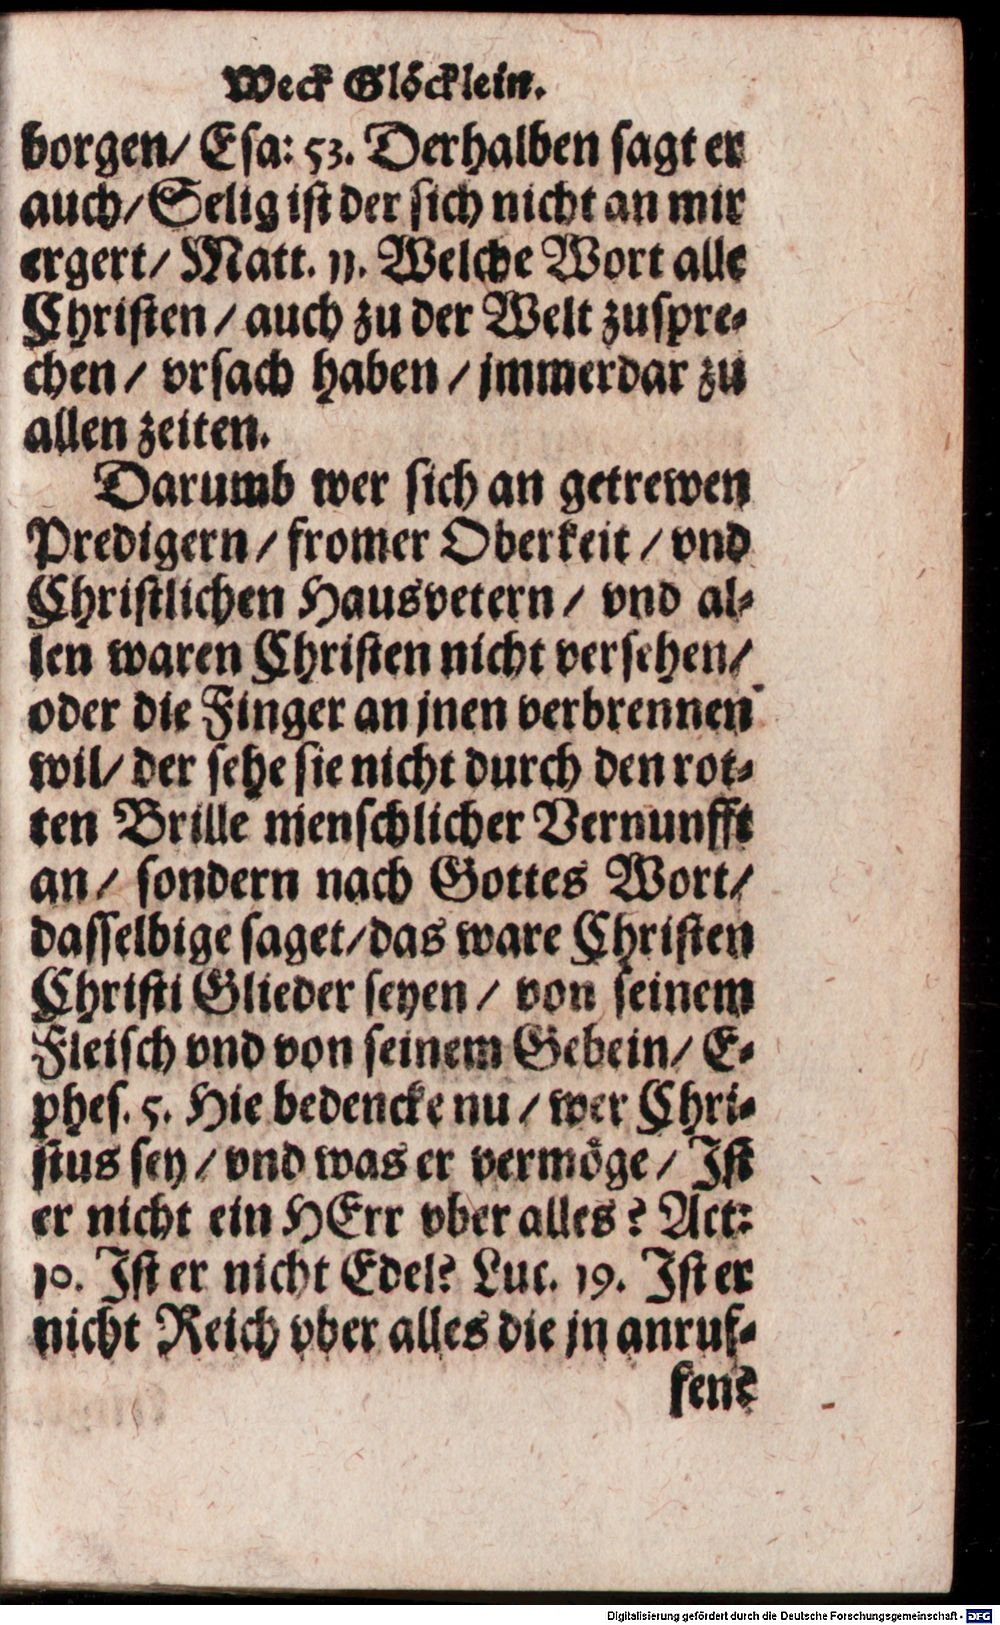 Weck Glöcklein.
borgen/ Esa: 53. Derhalben sagt er
auch/ Selig ist der sich nicht an mir
ergert/ Matt. 11. Welche Wort alle
Christen / auch zu der Welt zuspre-
chen / vrsach haben / jmmerdar zu
allen zeiten.
Darumb wer sich an getrewen
Predigern / fromer Oberkeit / vnd
Christlichen Hausvetern / vnd al-
len waren Christen nicht versehen/
oder die Finger an jnen verbrennen
wil/ der sehe sie nicht durch den rot-
ten Brille menschlicher Vernunfft
an / sondern nach Gottes Wort/
dasselbige saget/das ware Christen
Christi Glieder seyen / von seinem
Fleisch vnd von seinem Gebein/ E-
phes. 5. Hie bedencke nu / wer Chri-
stus sey / vnd was er vermöge / Ist
er nicht ein HErr vber alles? Act:
10. Ist er nicht Edel? Luc. 19. Ist er
nicht Reich vber alles die jn anruf-
fen?
Digitalisierung gefördert durch die Deutsche Forschungsgemeinschaft - DFG